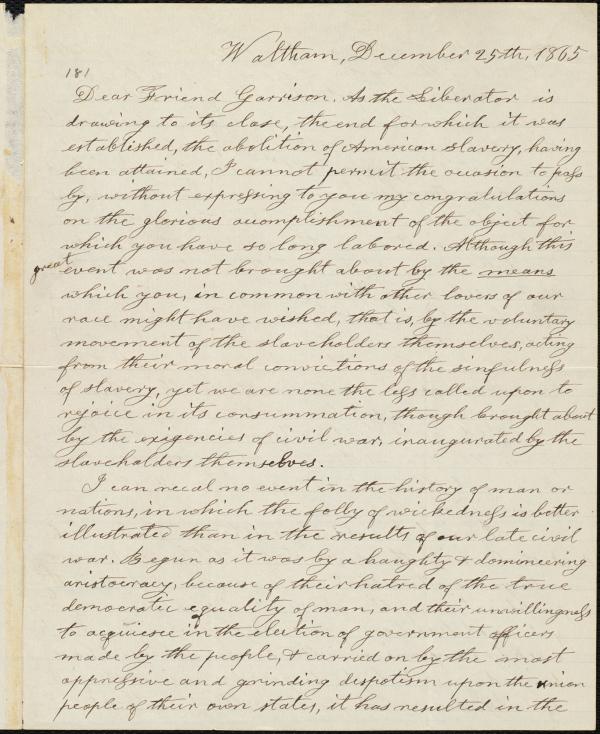 Waltham, December 25th, 1865
181
Dear Friend Garrison. As the Liberator is
drawing to its close, the end for which it was
established, the abolition of American slavery, having
been attained, I cannot permit the occasion to pass
by, without expressing to you my congratulations
on the glorious accomplishment of the object for
which you have so long labored. Although this
great event was not brought about by the means
which you, in common with other lovers of our
race might have wished, that is, by the voluntary
movement of the slaveholders themselves, acting
from their moral convictions of the sinfulness
of slavery, yet we are none the less called upon to
rejoice in its consummation, though brought about
by the exigencies of civil war, inaugurated by the
slaveholders themselves.
I can recal no event in the history of man or
nations, in which the folly of wickedness is better
illustrated than in the results of our late civil
war. Begun as it was by a haughty & domineering
aristocracy, because of their hatred of the true
democratic equality of man, and their unwillingness
to acquiesce in the election of government officers
made by the people, & carried on by the most
oppressive and grinding despotism upon the union
people of their own states, it has resulted in the